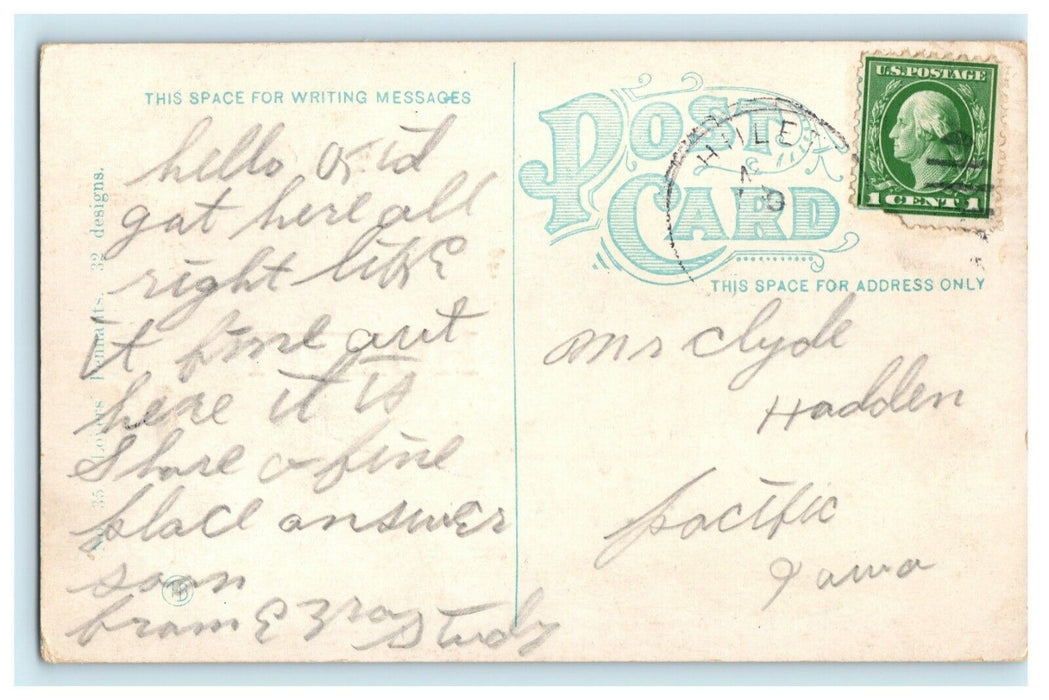 THIS SPACE FOR WRITING MESSAGES
hello Kid
got here all
right like
it fine out
here it is
Shore a fine
place answer
soon
from E Ray
Study
35 Lovers Pennants. 32 designs.
POST CARD
U.S. POSTAGE
1 CENT 1
THIS SPACE FOR ADDRESS ONLY
Mr Clyde
Hadden
pacific
Iowa